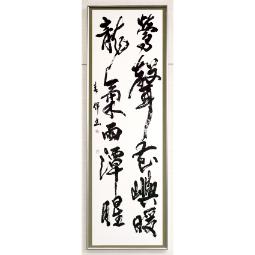 鶯聲花嶼暖
龍氣雨潭腥